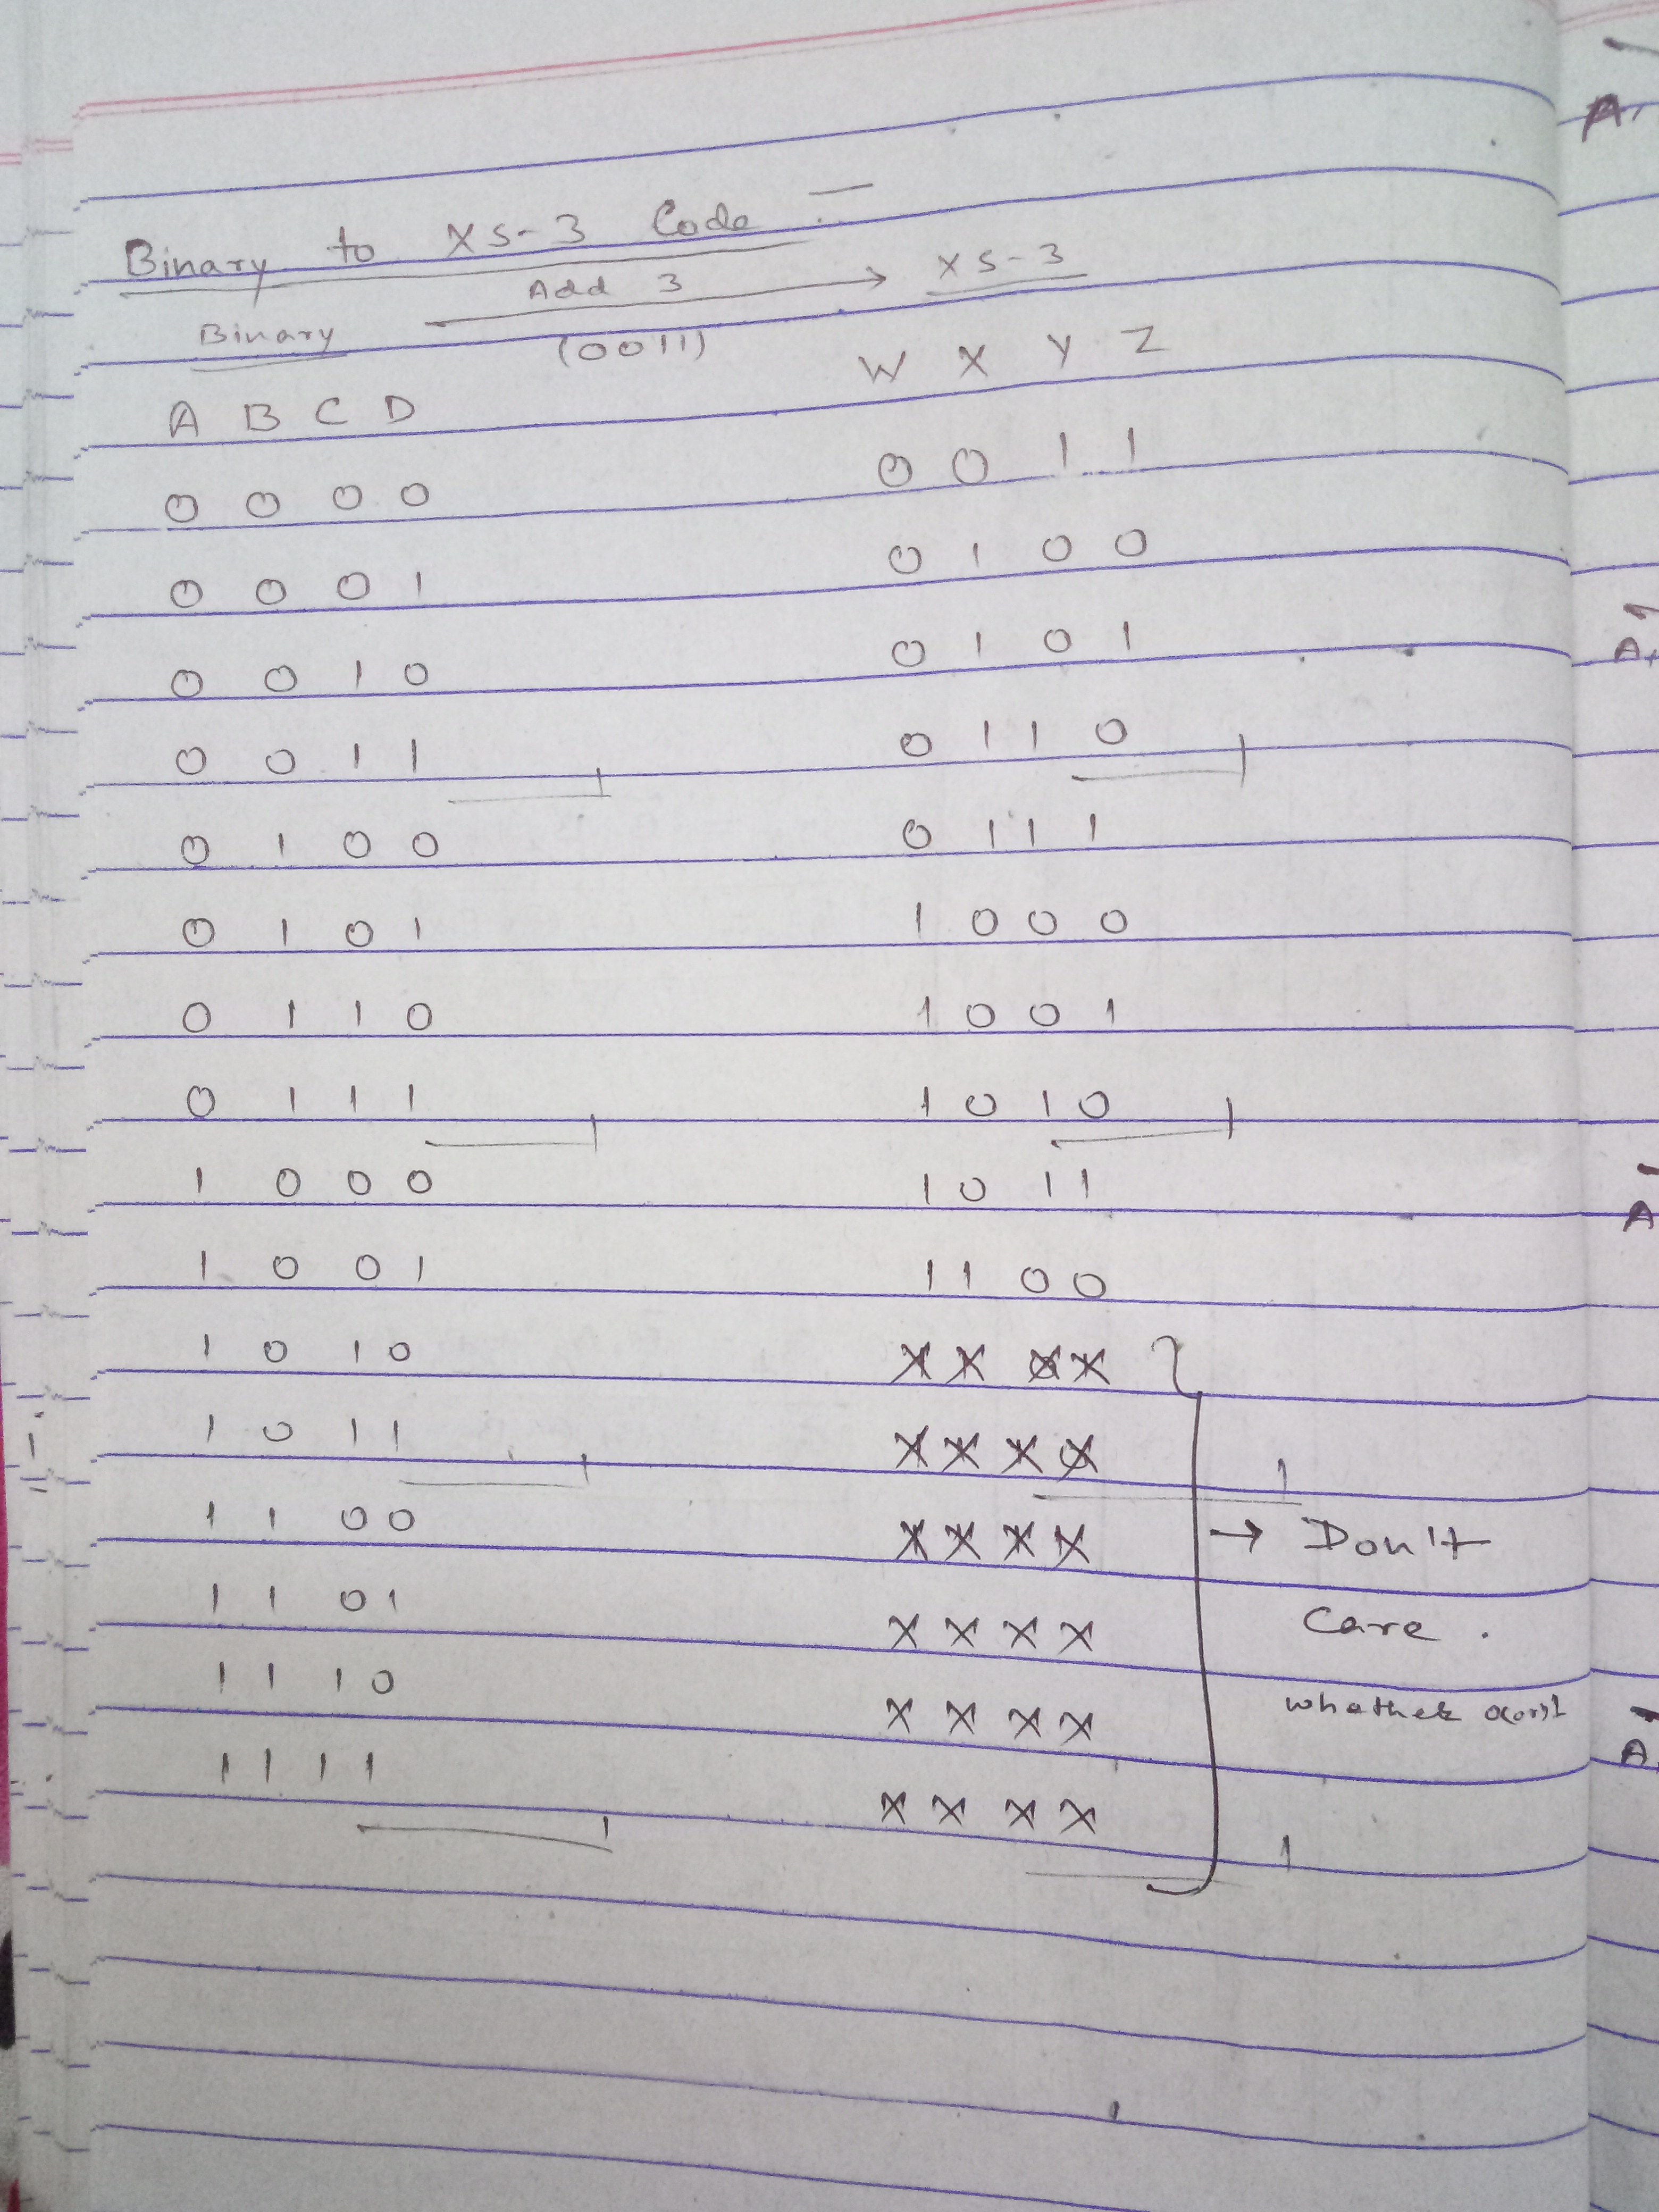 Binary to XS-3 Code :-
Binary Add 3 → XS-3
(0011)
A B C D W X Y Z
0 0 0 0 0 0 1 1
0 0 0 1 0 1 0 0
0 0 1 0 0 1 0 1
0 0 1 1 0 1 1 0
0 1 0 0 0 1 1 1
0 1 0 1 1 0 0 0
0 1 1 0 1 0 0 1
0 1 1 1 1 0 1 0
1 0 0 0 1 0 1 1
1 0 0 1 1 1 0 0
1 0 1 0 X X X X
1 0 1 1 X X X X
1 1 0 0 X X X X → Don't
1 1 0 1 X X X X Care .
1 1 1 0 X X X X
1 1 1 1 X X X X